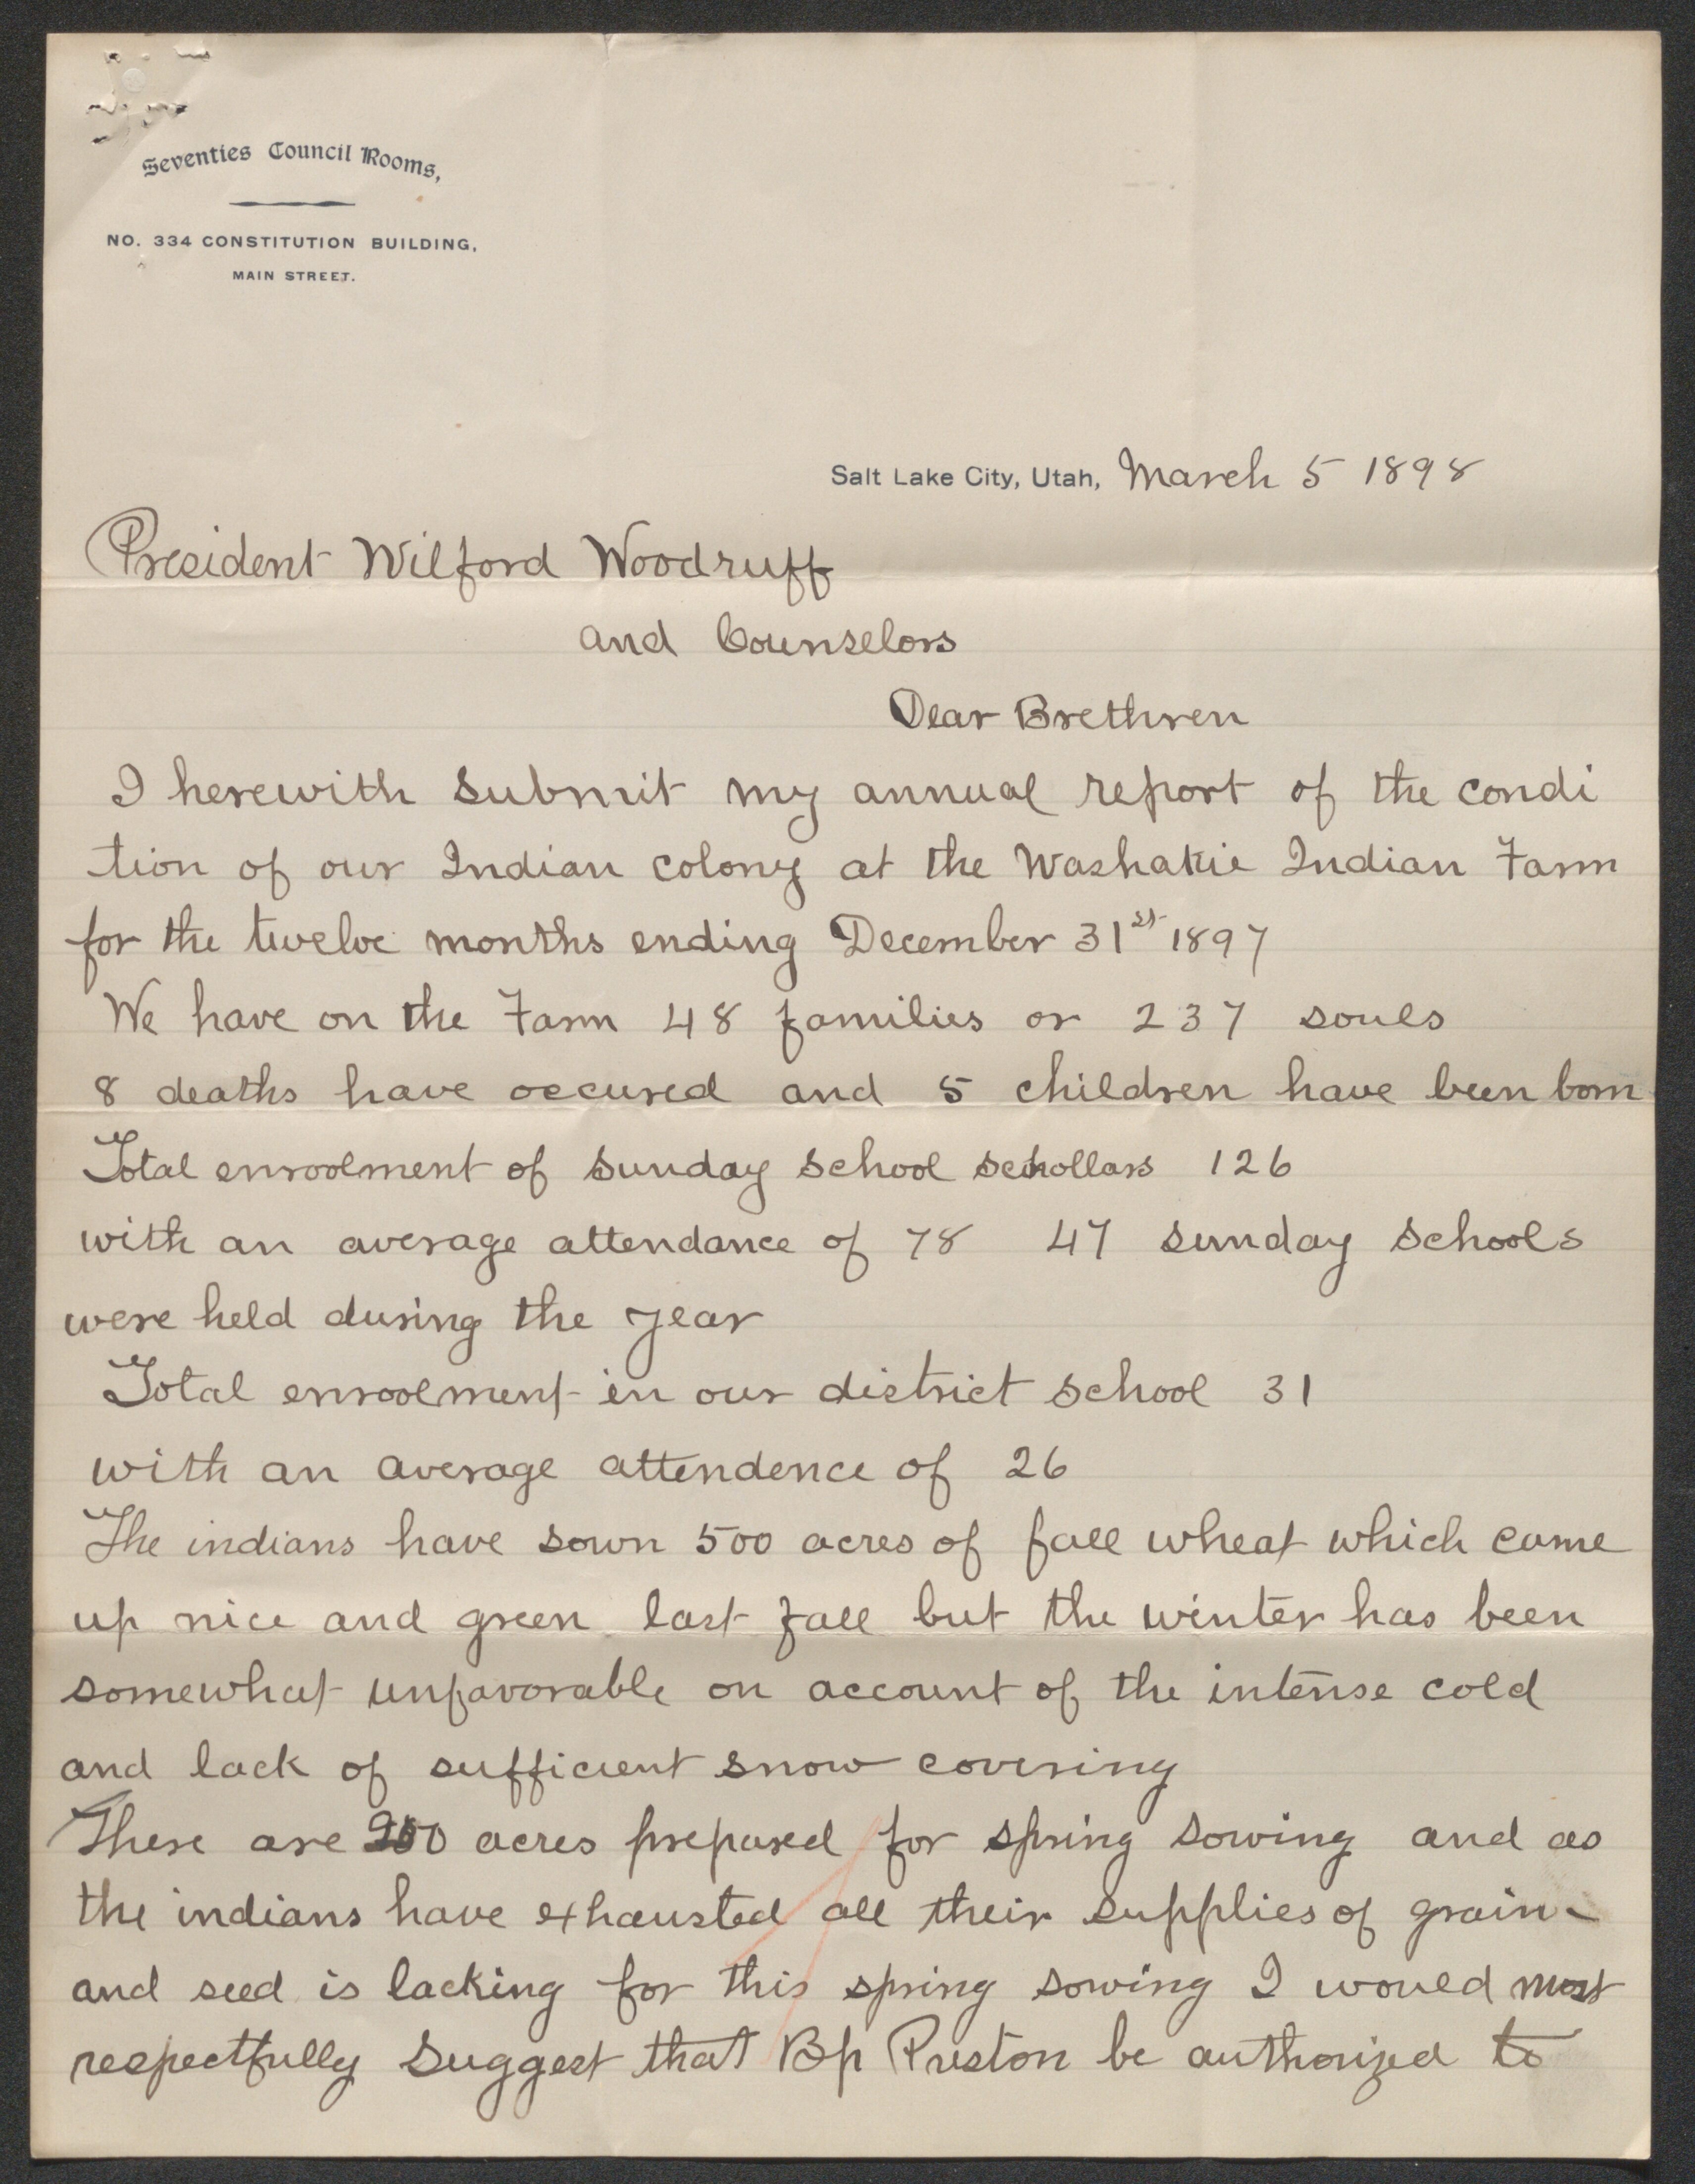 Seventies Council Rooms,
NO. 334 CONSTITUTION BUILDING,
MAIN STREET.
Salt Lake City, Utah, March 5 1898
President Wilford Woodruff
and Counselors
Dear Brethren
I herewith submit my annual report of the condi
tion of our Indian colony at the Washakie Indian Farm
for the twelve months ending December 31st 1897
We have on the Farm 48 families or 237 souls
8 deaths have occured and 5 children have been born
Total enroolment of Sunday school schollars 126
with an average attendance of 78 47 sunday schools
were held during the year
Total enroolment in our district school 31
with an average attendence of 26
The indians have sown 500 acres of fall wheat which came
up nice and green last fall but the winter has been
somewhat unfavorable on account of the intense cold
and lack of sufficient snow covering
There are acres prepared for spring sowing and as
the indians have exhausted all their supplies of grain
and seed is lacking for this spring sowing I would most
respectfully suggest that Bp Preston be authorized to